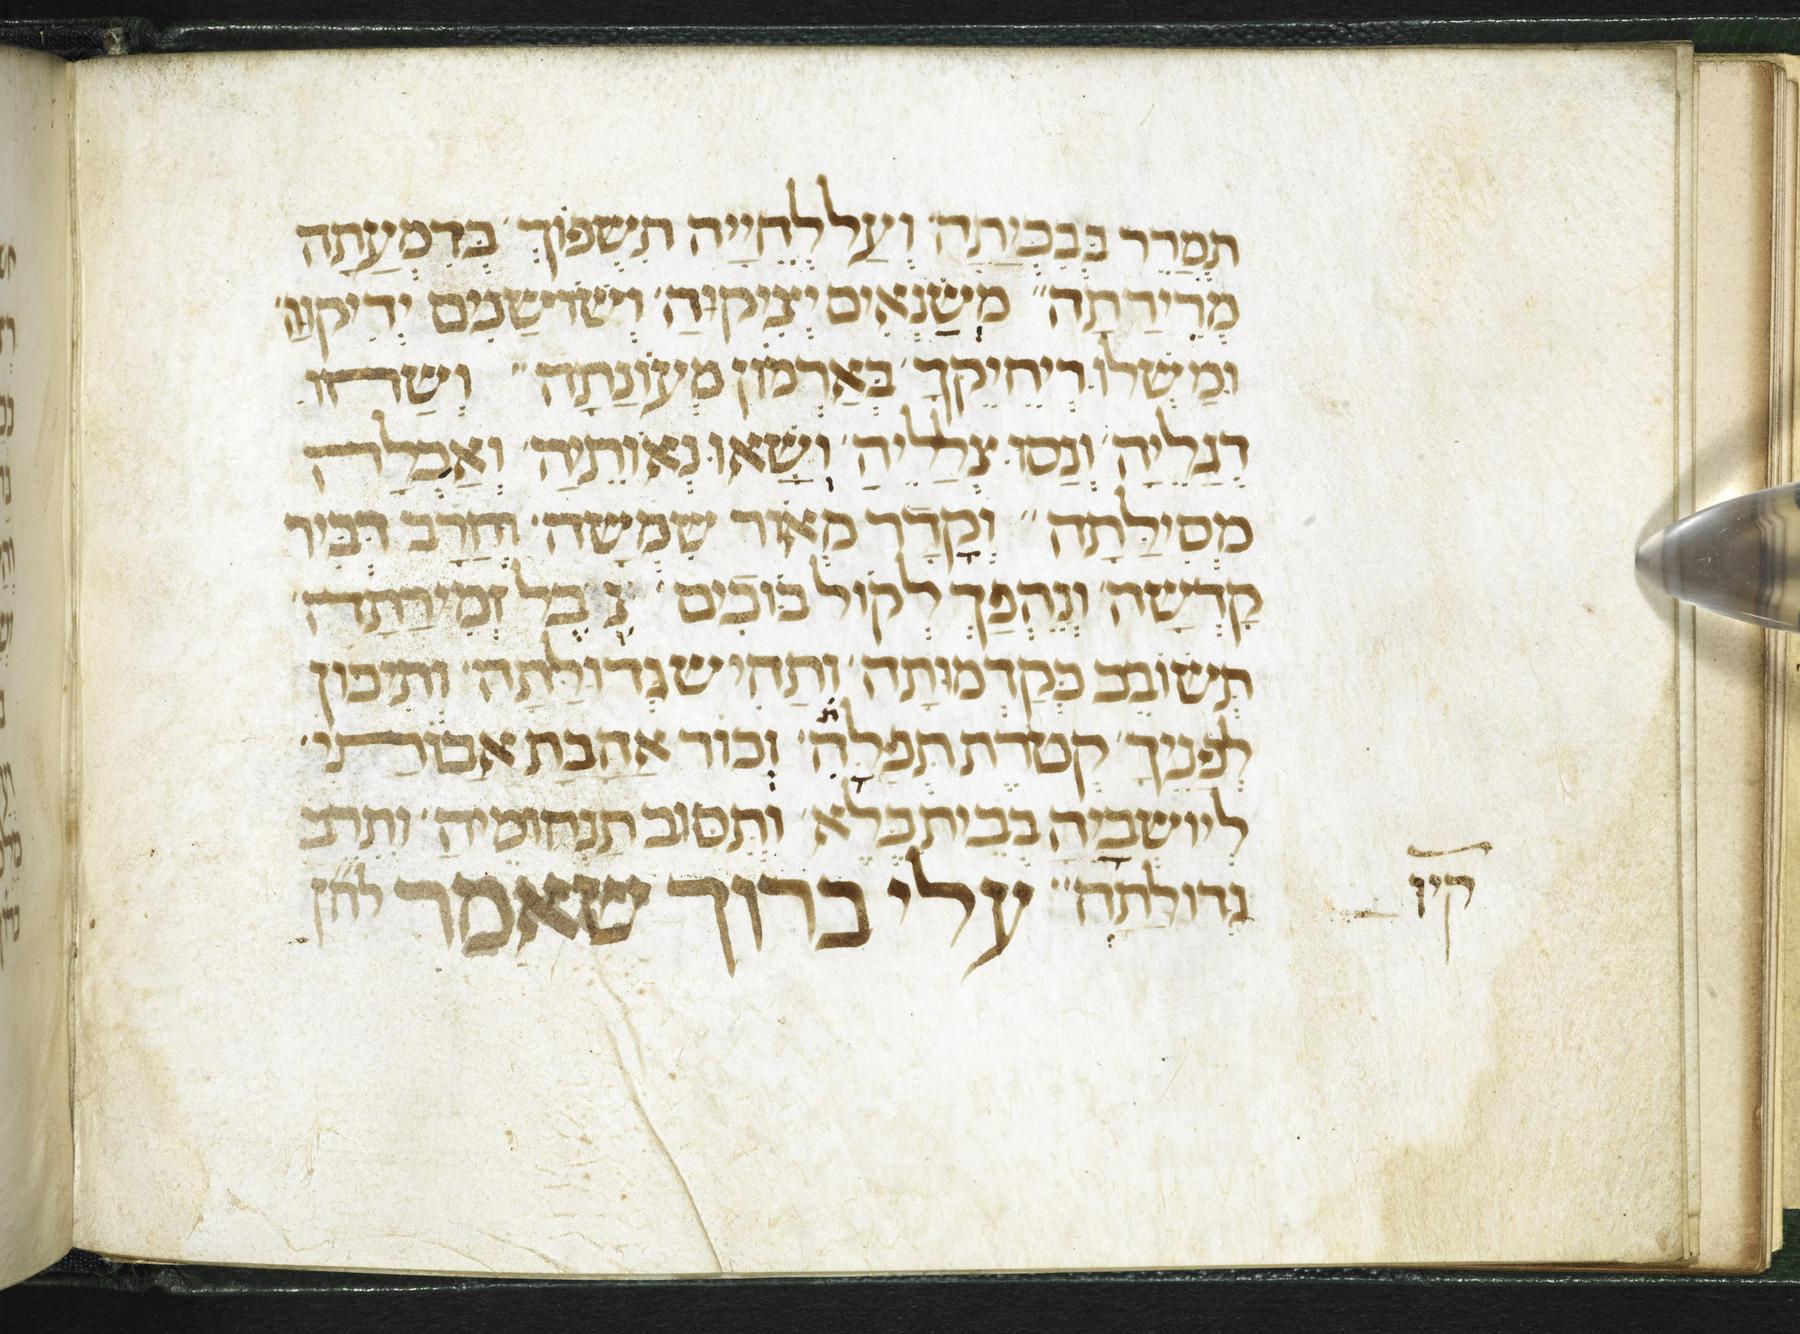 תְּמָרֵר בְּבִכְיָתָהּ׳ וְעַל לֶחֱיָיהּ תִשְׁפּוֹךְ׳ בְּדִמְעָתָהּ
מְרֵירָתָהּ״ מְשַׂנְאִים יְצִיקוּהָ׳ וְשׁוּשַׁנִים יְדִיקוּנָ׳
וּמַשְׁלוּ רְיחֵיקֵךָ׳ בְּאַרְמוֹן מְעוֹנָתָהּ״ וְשַׁחוּ
דְגָלֶיהָ׳ וְנָסוּ צְלָלֶיהָ׳ וְשָׁאוּ נְאוֹתֶיהָ׳ וְאָבְלָה
מְסִילָּתָהּ״ וְקָדַר מְאוֹר שִׁמְשָׁהּ׳ וְחָרַב דְּבִיר
קָדְשָׁהּ׳ וְנֶהְפַּךְ לְקוֹל בּוֹכִים׳ כָל זְמִירָתָהּ׳
תְּשׁוֹבֵב כְּקַדְמוּתָהּ׳ וְתָחִישׁ גְּדוּלָּתָהּ׳ וְתִיכּוֹן
לְפָנֶיךָ׳ קְטֹרֶת תְּפִלָּתָהּ׳ זְכוֹר אַהֲבַת אֲבוֹתַי׳
לְיוֹשְׁבֶיהָ בְּבֵית כֶּלֶא׳ וּתְסוֹב תַּנְחוּמֶיהָ׳ וְתֶרֶב
גְדוּלָתָהּ״ עלי ברוך שאמר לחן
קיו